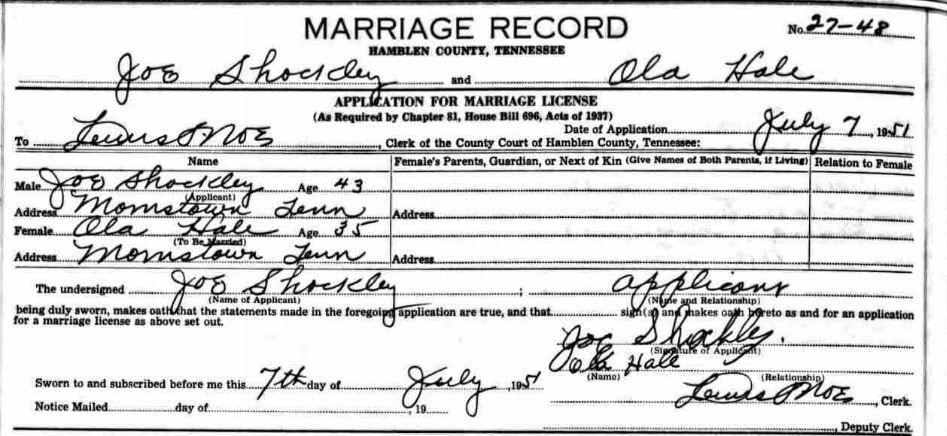 MARRIAGE RECORD
No. 27-48
HAMBLEN COUNTY, TENNESSEE
Joe Shockley and Ola Hale
APPLICATION FOR MARRIAGE LICENSE
(As Required by Chapter 81, House Bill 696, Acts of 1937)
Date of Application July 7, 1951
To Lewis Moe, Clerk of the County Court of Hamblen County, Tennessee:
Name Female's Parents, Guardian, or Next of Kin (Give Names of Both Parents, if Living) Relation to Female
Male Joe Shockley Age 43
(Applicant)
Address Morristown Tenn Address
Female Ola Hale Age 35
(To Be Married)
Address Morristown Tenn Address
The undersigned Joe Shockley ; applicant
(Name of Applicant) (Name and Relationship)
being duly sworn, makes oath that the statements made in the foregoing application are true, and that sign(s) and makes oath hereto as and for an application
for a marriage license as above set out.
Joe Shockley.
(Signature of Applicant)
Ola Hale
(Name) (Relationship)
Sworn to and subscribed before me this 7th day of July, 1951 Lewis Moe, Clerk.
Notice Mailed day of , 19
, Deputy Clerk.